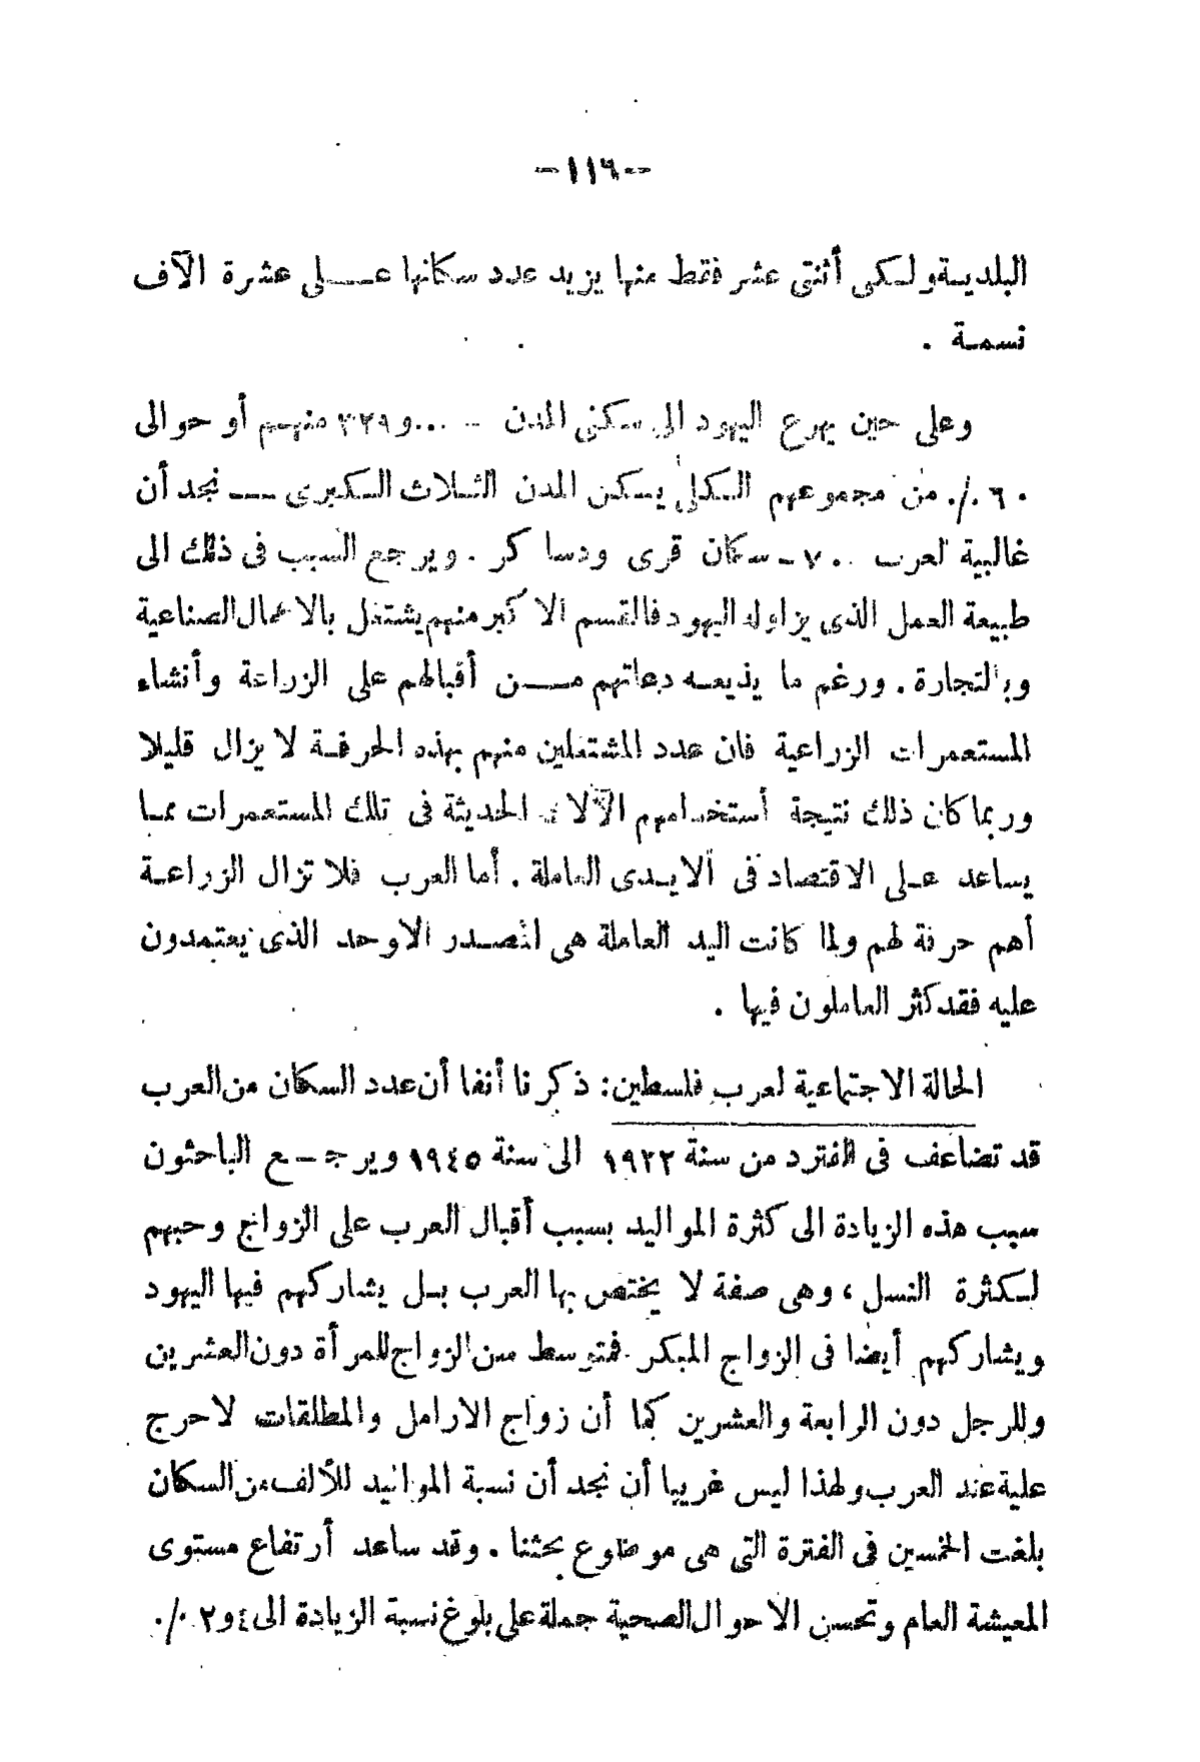 -١١٦-
البلدية ولكن أثنتى عشر فقط منها يزيد عدد سكانها على عشرة الآف
نسمة .
وعلى حين يهرع اليهود الى سكنى المدن - ٠٠٠و٣٢٩ منهم أو حوالى
٦٠ ٠/٠ من مجموعهم الكلى يسكن المدن الثلاث الكبرى — نجد أن
غالبية العرب ٧٠ - سكان قرى ودساكر . ويرجع السبب فى ذلك الى
طبيعة العمل الذى يزاوله اليهود فالقسم الاكبر منهم يشتغل بالاعمال الصناعية
وبالتجارة . ورغم ما يذيعه دعاتهم من أقبالهم على الزراعة وأنشاء
المستعمرات الزراعية فان عدد المشتغلين منهم بهذه الحرفة لا يزال قليلا
وربما كان ذلك نتيجة أستخدامهم الآلات الحديثة فى تلك المستعمرات مما
يساعد على الاقتصاد فى الايدى العاملة . أما العرب فلا تزال الزراعة
أهم حرفة لهم ولما كانت اليد العاملة هى المصدر الاوحد الذى يعتمدون
عليه فقد كثر العاملون فيها .
الحالة الاجتماعية لعرب فلسطين : ذكرنا أنفا أن عدد السكان من العرب
قد تضاعف فى الفترة من سنة ١٩٢٢ الى سنة ١٩٤٥ ويرجع الباحثون
سبب هذه الزيادة الى كثرة المواليد بسبب أقبال العرب على الزواج وحبهم
لكثرة النسل ، وهى صفة لا يختص بها العرب بل يشاركهم فيها اليهود
ويشاركهم أيضا فى الزواج المبكر . فمتوسط سن الزواج للمرأة دون العشرين
وللرجل دون الرابعة والعشرين كما أن زواج الارامل والمطلقات لا حرج
علية عند العرب ولهذا ليس غريبا أن نجد أن نسبة المواليد للألف من السكان
بلغت الخمسين فى الفترة التى هى موضوع بحثنا . وقد ساعد أرتفاع مستوى
المعيشة العام وتحسن الاحوال الصحية جملة على بلوغ نسبة الزيادة الى ٤و٢ ٠/٠